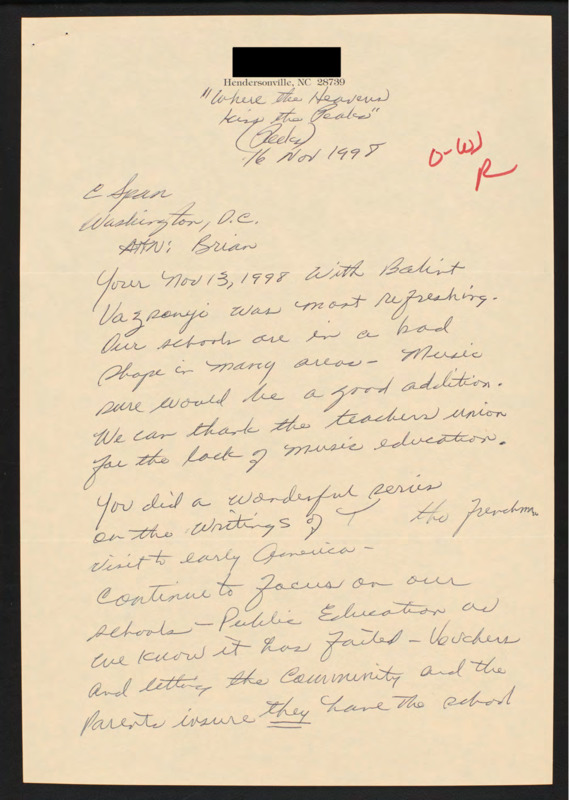 Hendersonville, NC 28739
"Where the Heavens
Kiss the Peaks"
(Peeks)
16 Nov 1998
O-W
R
C Span
Washington, D.C.
Attn: Brian
Your Nov 13, 1998 with Balint
Vazsonyi was most refreshing.
Our schools are in a bad
shape in many areas - Music
sure would be a good addition.
We can thank the teachers union
for the lack of music education.
You did a wonderful series
on the writings of T the Frenchman
visit to early America -
Continue to focus on our
schools - Public Education as
we know it has failed - Vouchers
and letting the Community and the
Parents insure they have the school